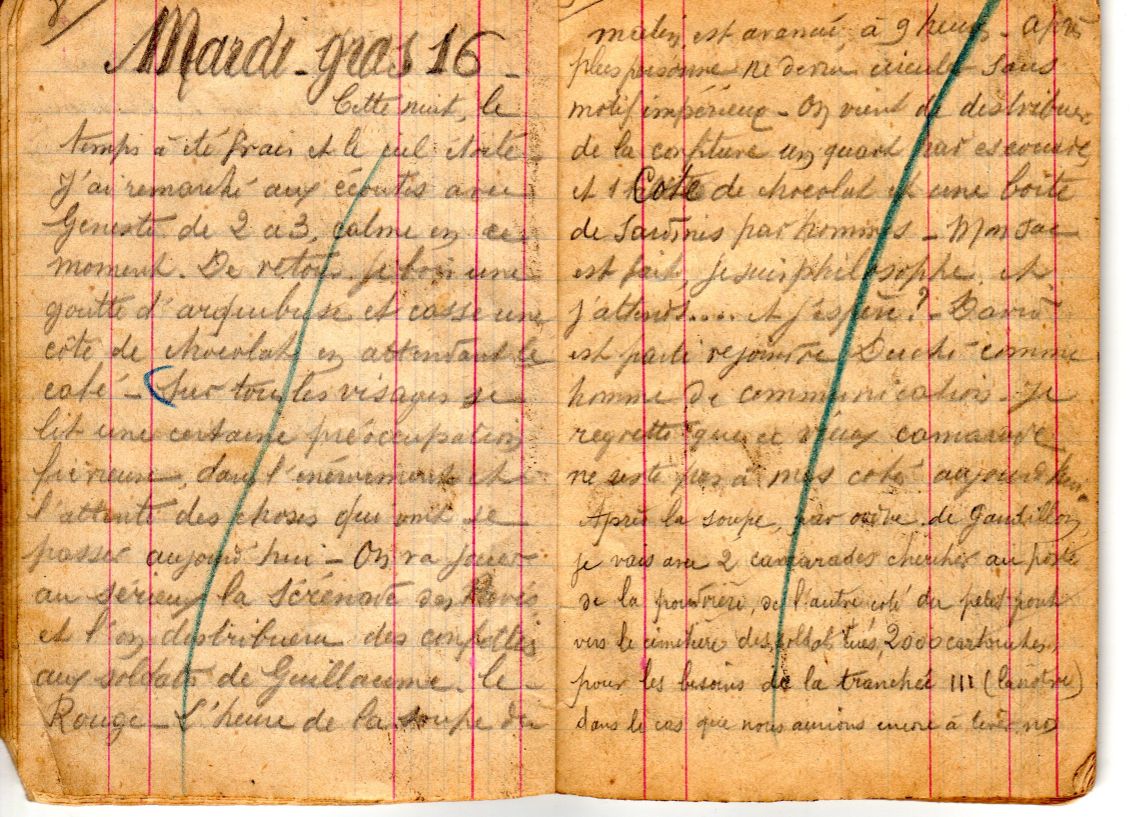 Mardi-gras 16 -
Cette nuit, le
temps a été frais et le ciel étoilé -
J'ai remarché aux écoutes avec
Geneste de 2 à 3, calme en ce
moment. De retour je bois une
goutte d'arquebuse et casse une
côte de chocolat en attendant le
café - Sur tous les visages se
lit une certaine préoccupation
fiévreuse dans l'énervement et
l'attente des choses qui vont se
passer aujourd'hui - On va jouer
au sérieux la sérénade des
et l'on distribuera des confettis
aux soldats de Guillaume le-
Rouge - L'heure de la soupe du
matin est avancé, à 9 heures - Après
plus personne ne devra circuler sans
motif impérieux - On vient de distribuer
de la confiture un quart par escouade
et 1 Cote de chocolat et une boîte
de sardines par hommes - Mon sac
est fait, je suis philosophe et
j'attends.... et j'espère? - David
est parti rejoindre Duché comme
homme de communication - Je
regrette que ce vieux camarade
ne reste pas à mes coté aujourd'hui.
Après la soupe, par ordre de Gautillon
je vais avec 2 camarades chercher au poste
de la poudrière, de l'autre coté du petit pont
vers le cimetière des soldats tués, 2000 cartouches,
pour les besoins de la tranchée III (la nôtre)
dans le cas que nous aurions encore à tirer nos